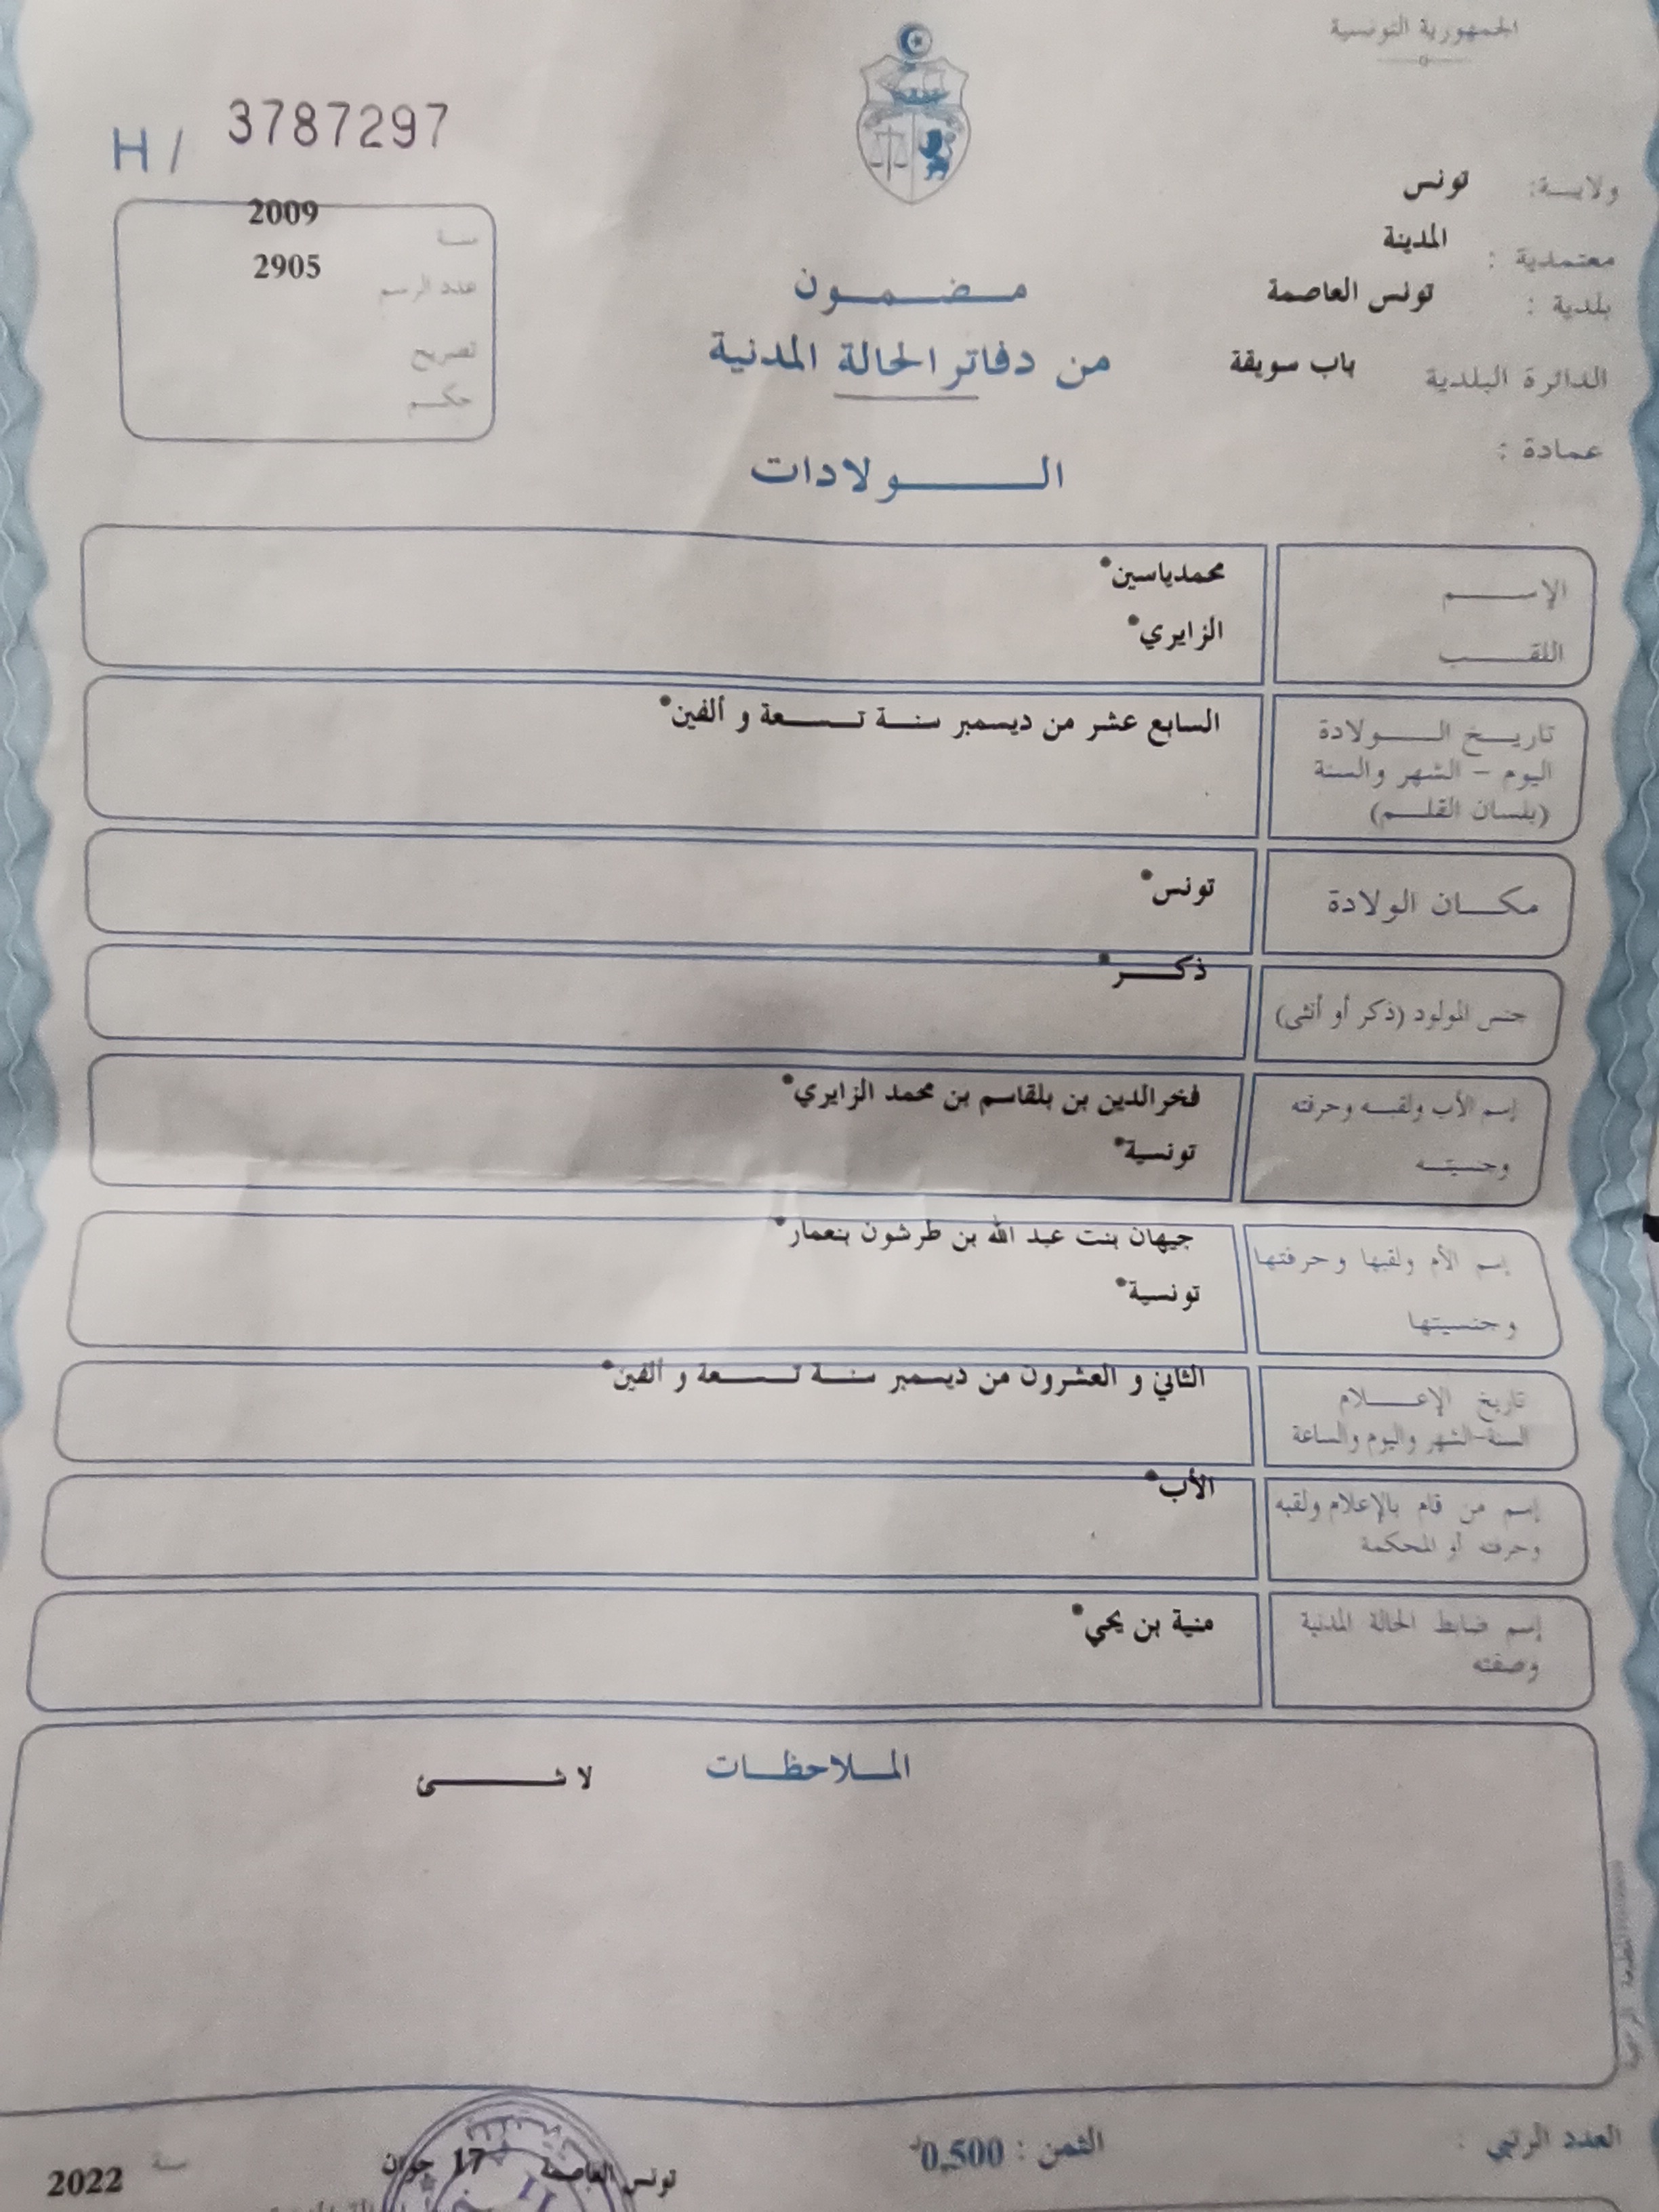 الجمهورية التونسية
H / 3787297
ولايــة: تونس
معتمدية : المدينة
بلدية : تونس العاصمة
الدائرة البلدية باب سويقة
عمادة :
سنـة 2009
عدد الرسم 2905
تصريح
حكـم
مـضـمـون
من دفاتر الحالة المدنية
الـــولادات
الإســـم محمدياسين
اللقـــب الزايري
تاريـخ الـــولادة
اليوم - الشهر والسنة
(بلسان القلـم)
السابع عشر من ديسمبر سنـة تـسـعة و ألفين
مكـان الولادة تونس
جنس المولود (ذكر أو أنثى) ذكـر
إسم الأب ولقبـه وحرفته فخرالدين بن بلقاسم بن محمد الزايري
وجنسيتـه تونسية
إسم الأم ولقبها وحرفتها جيهان بنت عبد الله بن طرشون بنعمار
وجنسيتها تونسية
تاريخ الإعــلام
السنة-الشهر واليوم والساعة
الثاني و العشرون من ديسمبر سنـة تـسـعة و ألفين
إسم من قام بالإعلام ولقبه
وحرفته أو المحكمة
الأب
إسم ضابط الحالة المدنية
وصفته
منية بن يحي
المـلاحظـات لا شـــئ
العدد الرتبي :
الثمن : 0,500
تونس العاصمة 17 جوان سنـة 2022